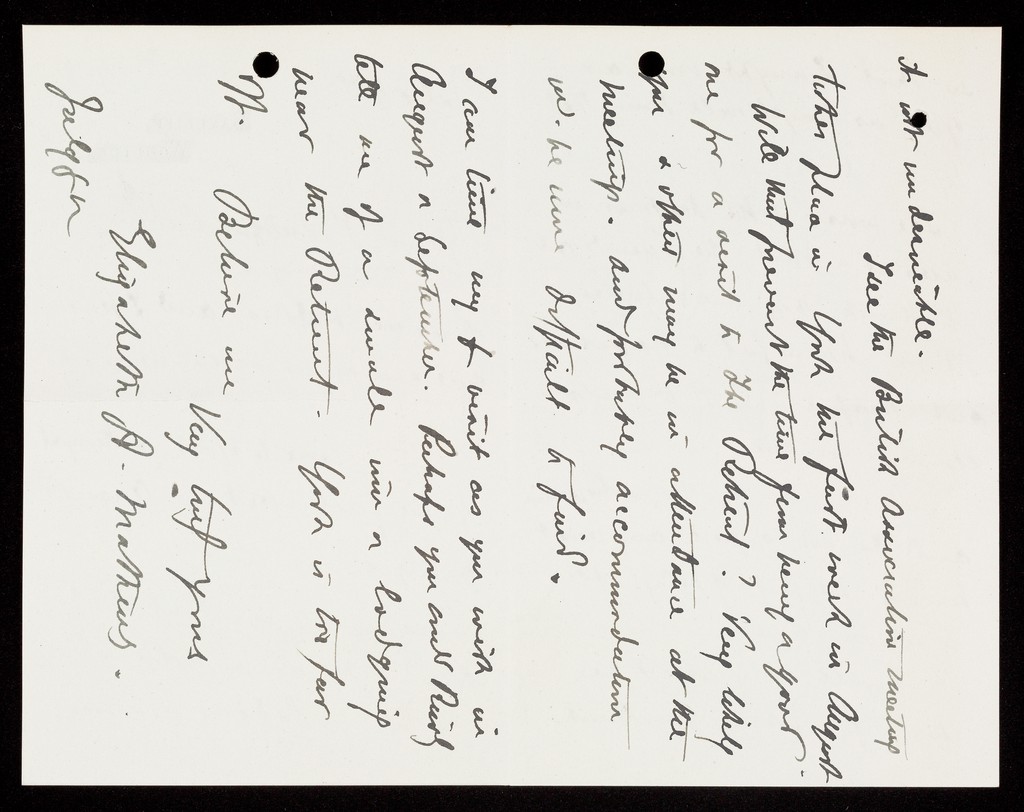 is not undesirable.
I see the British Association meeting
takes place in York the first week in August
Will that prevent the time from being a good
one for a visit to The Retreat? Very likely
you & others may be in attendance at the
meetings. and probably accommodation
wd. be more difficult to find.
I can time my visit as you wish in
August or September. Perhaps you could kindly
tell me of a simple inn or lodgings
near the Retreat. York is too far
off.
Believe me
Very truly yours
Elizabeth A. Matheus.